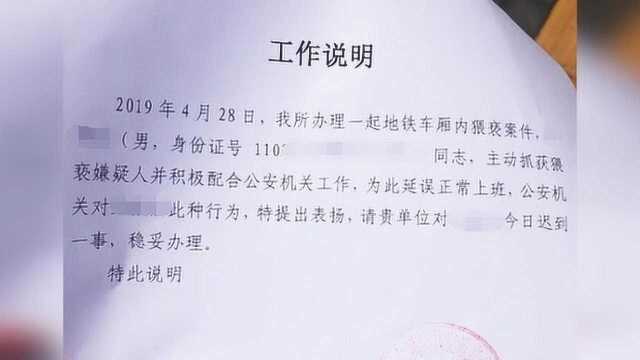 工作说明
2019年4月28日，我所办理一起地铁车厢内猥亵案件，
（男，身份证号 110 同志，主动抓获猥
亵嫌疑人并积极配合公安机关工作，为此延误正常上班，公安机
关对 此种行为，特提出表扬，请贵单位对 今日迟到
一事，稳妥办理。
特此说明